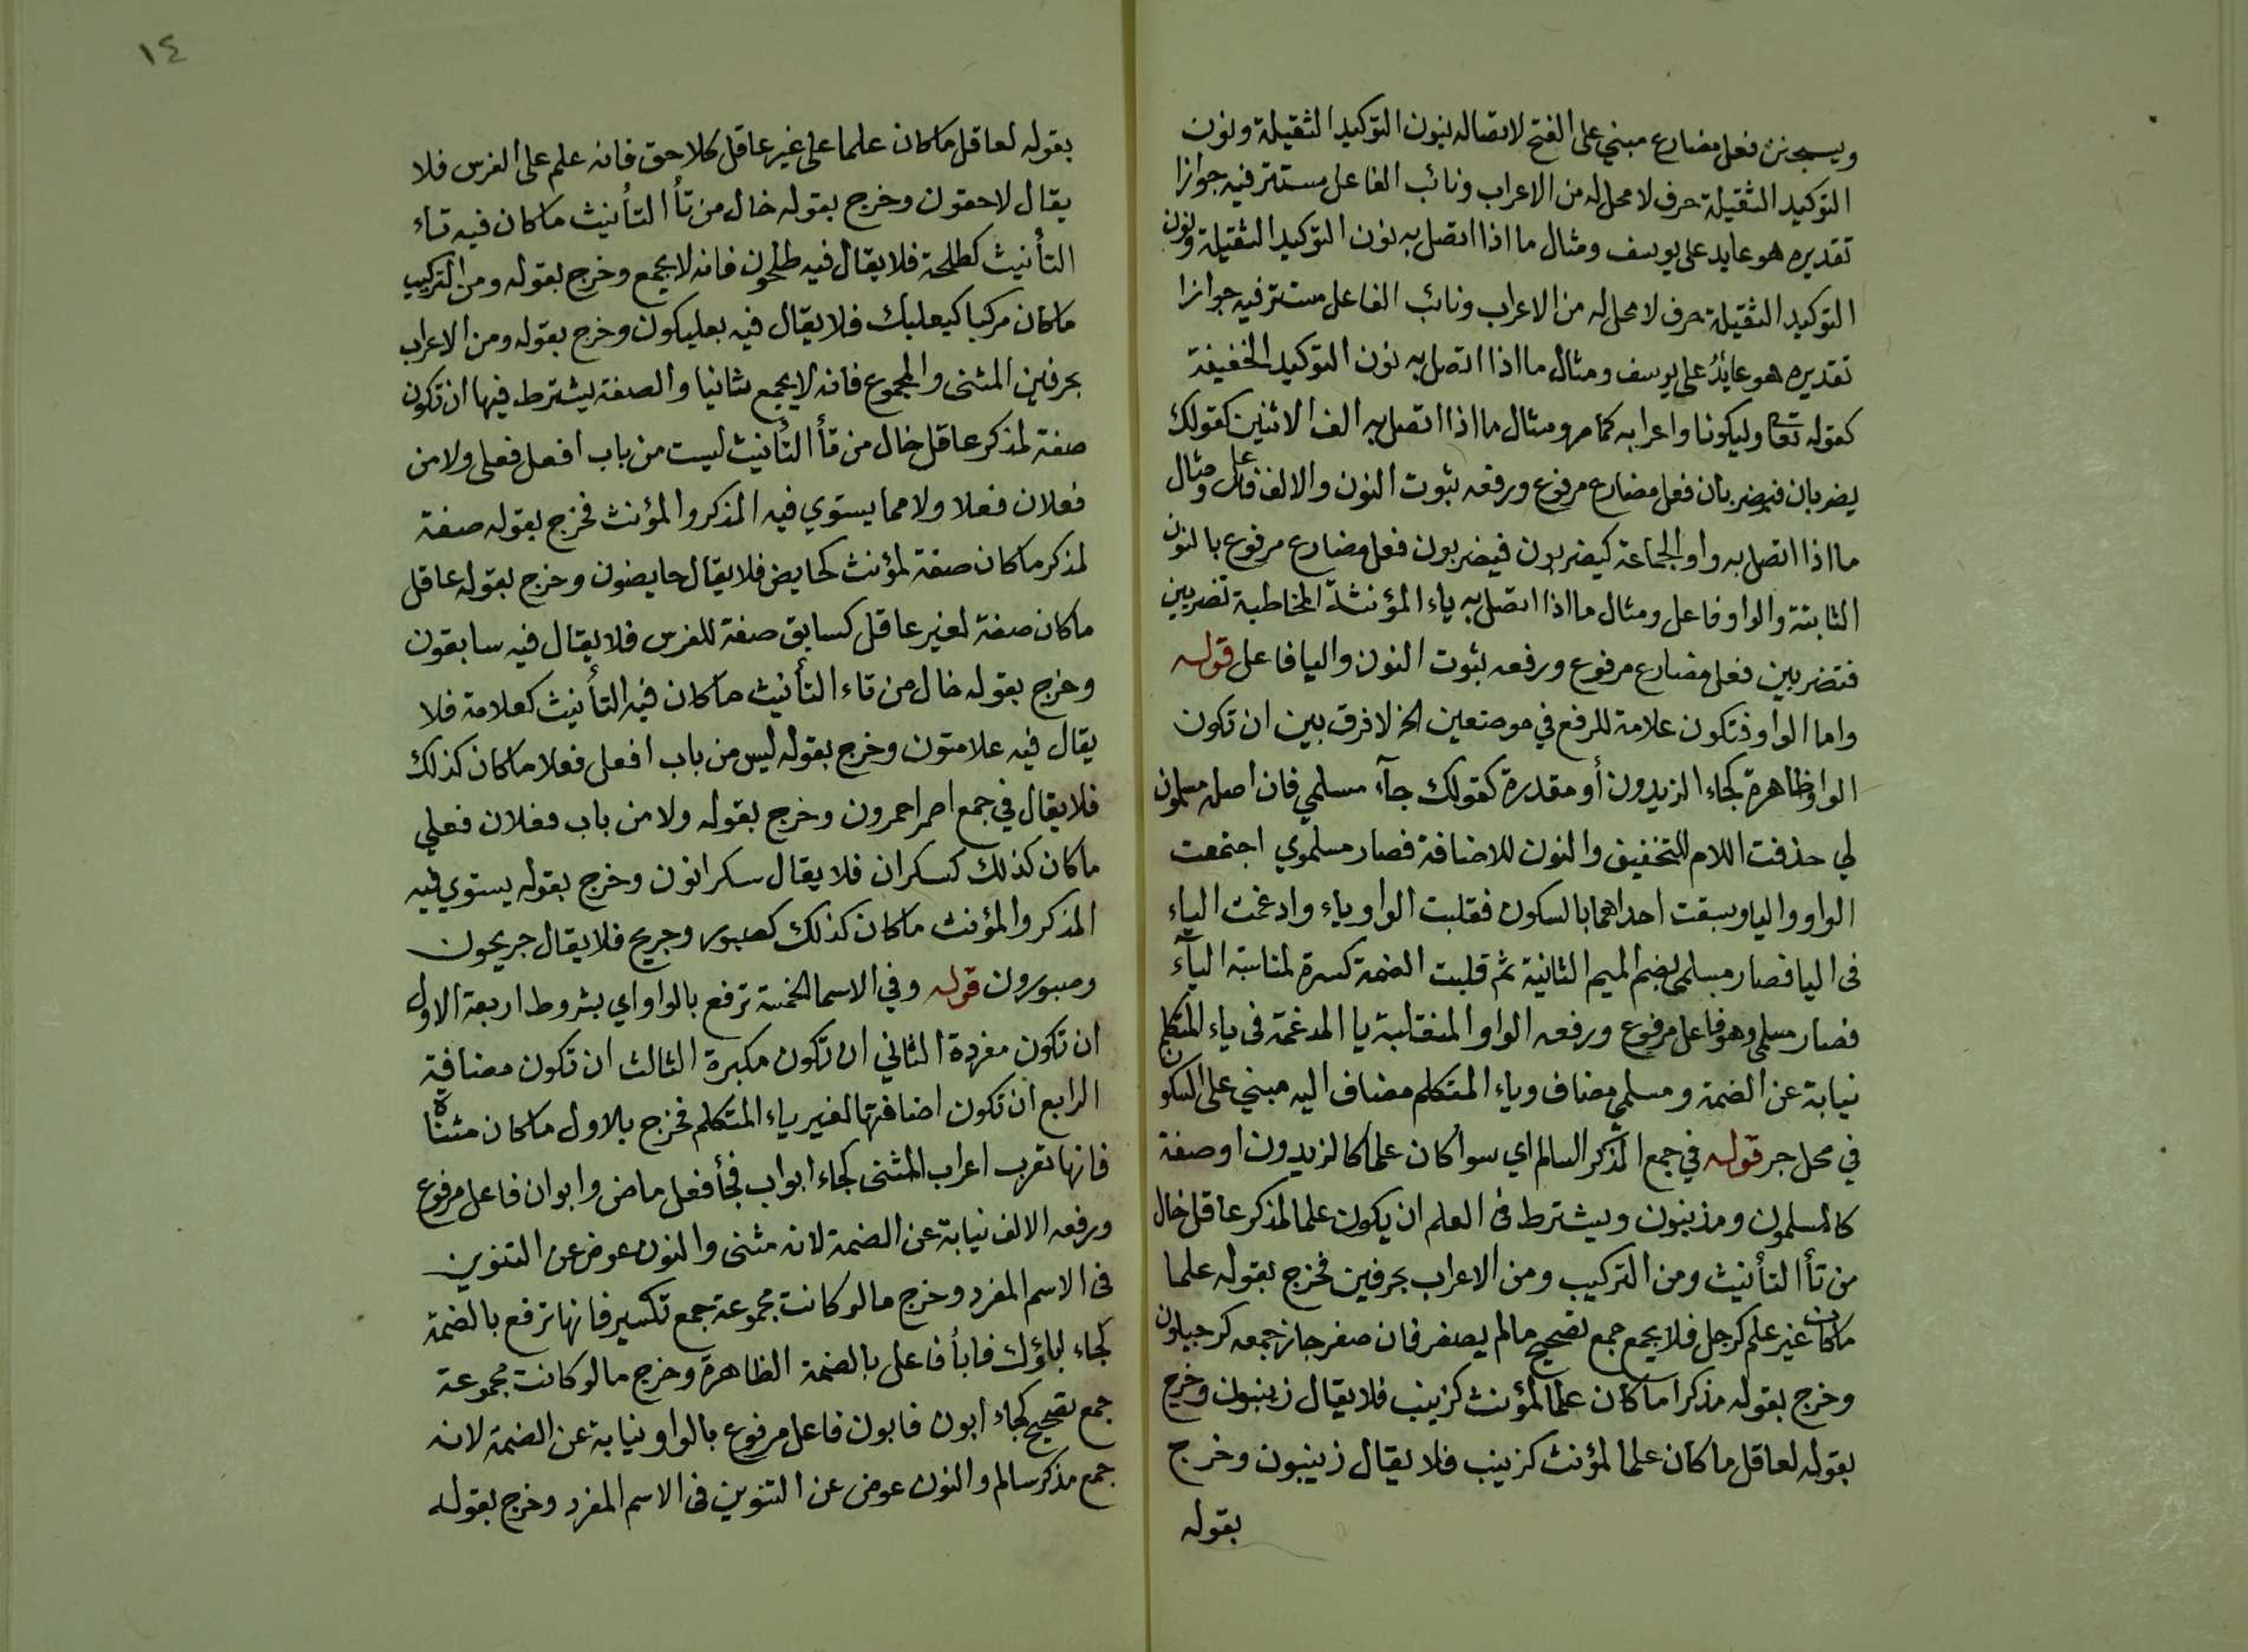 ويسجنن فعل مضارع مبني على الفتح لاتصاله بنون التوكيد الثقيلة ونون
التوكيد الثقيلة حرف لا محل له من الاعراب ونائب الفاعل مستتر فيه جوازا
تقديره هو عايد على يوسف ومثال ما اذا اتصل به نون التوكيد الثقيلة ونون
التوكيد الثقيلة حرف لا محل له من الاعراب ونائب الفاعل مستتر فيه جوازا
تقديره هو عايد على يوسف ومثال ما اذا اتصل به نون التوكيد الخفيفة
كقوله تعا وليكونا واعرابه كما مر ومثال ما اذا اتصل به الف الاثنين كقولك
يضربان فيضربان فعل مضارع مرفوع ورفعه بثبوت النون والالف فاعل ومثال
ما اذا اتصل به واو الجماعة كيضربون فيضربون فعل مضارع مرفوع بالنون
الثابتة والواو فاعل ومثال ما اذا اتصل به ياء المؤنثة المخاطبة تضربين
فتضربين فعل مضارع مرفوع ورفعه بثبوت النون واليا فاعل قوله
واما الواو فتكون علامة للرفع في موضعين الخ لا فرق بين ان تكون
الواو ظاهرة كجاء الزيدون أو مقدرة كقولك جآء مسلمي فان اصله مسلمون
لي حذفت اللام للتخفيف والنون للاضافة فصار مسلموي اجتمعت
الواو واليا وسبقت احداهما بالسكون فقلبت الواو ياء وادغمت الياء
فى اليا فصار مسلمي بضم الميم الثانية ثم قلبت الضمة كسرة لمناسبة اليآء
فصار مسلمي وهو فاعل مرفوع ورفعه الواو المنقلبة يا المدغمة فى ياء المتكلم
نيابة عن الضمة ومسلمي مضاف وياء المتكلم مضاف اليه مبني على السكون
في محل جر قوله في جمع المذكر السالم اي سوا كان علما كالزيدون او صفة
كالمسلمون ومذنبون ويشترط فى العلم ان يكون علما لمذكر عاقل خال
من تأ التأنيث ومن التركيب ومن الاعراب بحرفين فخرج بقوله علما
ماكان غير علم كرجل فلا يجمع جمع تصحيح مالم يصغر فان صغر جاز جمعه كرجيلون
وخرج بقوله مذكرا ماكان علما لمؤنث كزينب فلا يقال زينبون وخرج
بقوله لعاقل ماكان علما لمؤنث كزينب فلا يقال زينبون وخرج
بقوله
١٤
بقوله لعاقل ماكان علما على غير عاقل كلاحق فانه علم على الفرس فلا
يقال لاحقون وخرج بقوله خال من تأ التأنيث ماكان فيه تاء
التأنيث كطلحة فلا يقال فيه طلحون فانه لا يجمع وخرج بقوله ومن التركيب
ماكان مركبا كبعلبك فلا يقال فيه بعلبكون وخرج بقوله ومن الاعراب
بحرفين المثنى والمجموع فانه لا يجمع ثانيا والصفة يشترط فيها ان تكون
صفة لمذكر عاقل خال من تأ التأنيث ليست من باب افعل فعلى ولا من
فعلان فعلا ولا مما يستوي فيه المذكر والمؤنث فخرج بقوله صفة
لمذكر ماكان صفة لمؤنث كحايض فلا يقال حايضون وخرج بقوله عاقل
ماكان صفة لغير عاقل كسابق صفة للفرس فلا يقال فيه سابقون
وخرج بقوله خال من تاء التأنيث ماكان فيه التأنيث كعلامة فلا
يقال فيه علامتون وخرج بقوله ليس من باب افعل فعلا ماكان كذلك
فلا يقال في جمع احمر احمرون وخرج بقوله ولا من باب فعلان فعلي
ماكان كذلك كسكران فلا يقال سكرانون وخرج بقوله يستوي فيه
المذكر والمؤنث ماكان كذلك كصبور وجريح فلا يقال جريحون
وصبورون قوله وفي الاسما الخمسة ترفع بالواو اي بشروط اربعة الاول
ان تكون مفردة الثاني ان تكون مكبرة الثالث ان تكون مضافة
الرابع ان تكون اضافتها لغير ياء المتكلم فخرج بالاول ماكان مثناة
فانها تعرب اعراب المثنى كجاء ابواب فجأ فعل ماض وابوان فاعل مرفوع
ورفعه الالف نيابة عن الضمة لانه مثنى والنون عوض عن التنوين
فى الاسم المفرد وخرج مالو كانت مجموعة جمع تكسير فانها ترفع بالضمة
كجاء اباؤك فابأ فاعل بالضمة الظاهرة وخرج مالو كانت مجموعة
جمع تصحيح كجاء ابون فابون فاعل مرفوع بالواو نيابة عن الضمة لانه
جمع مذكر سالم والنون عوض عن التنوين فى الاسم المفرد وخرج بقوله